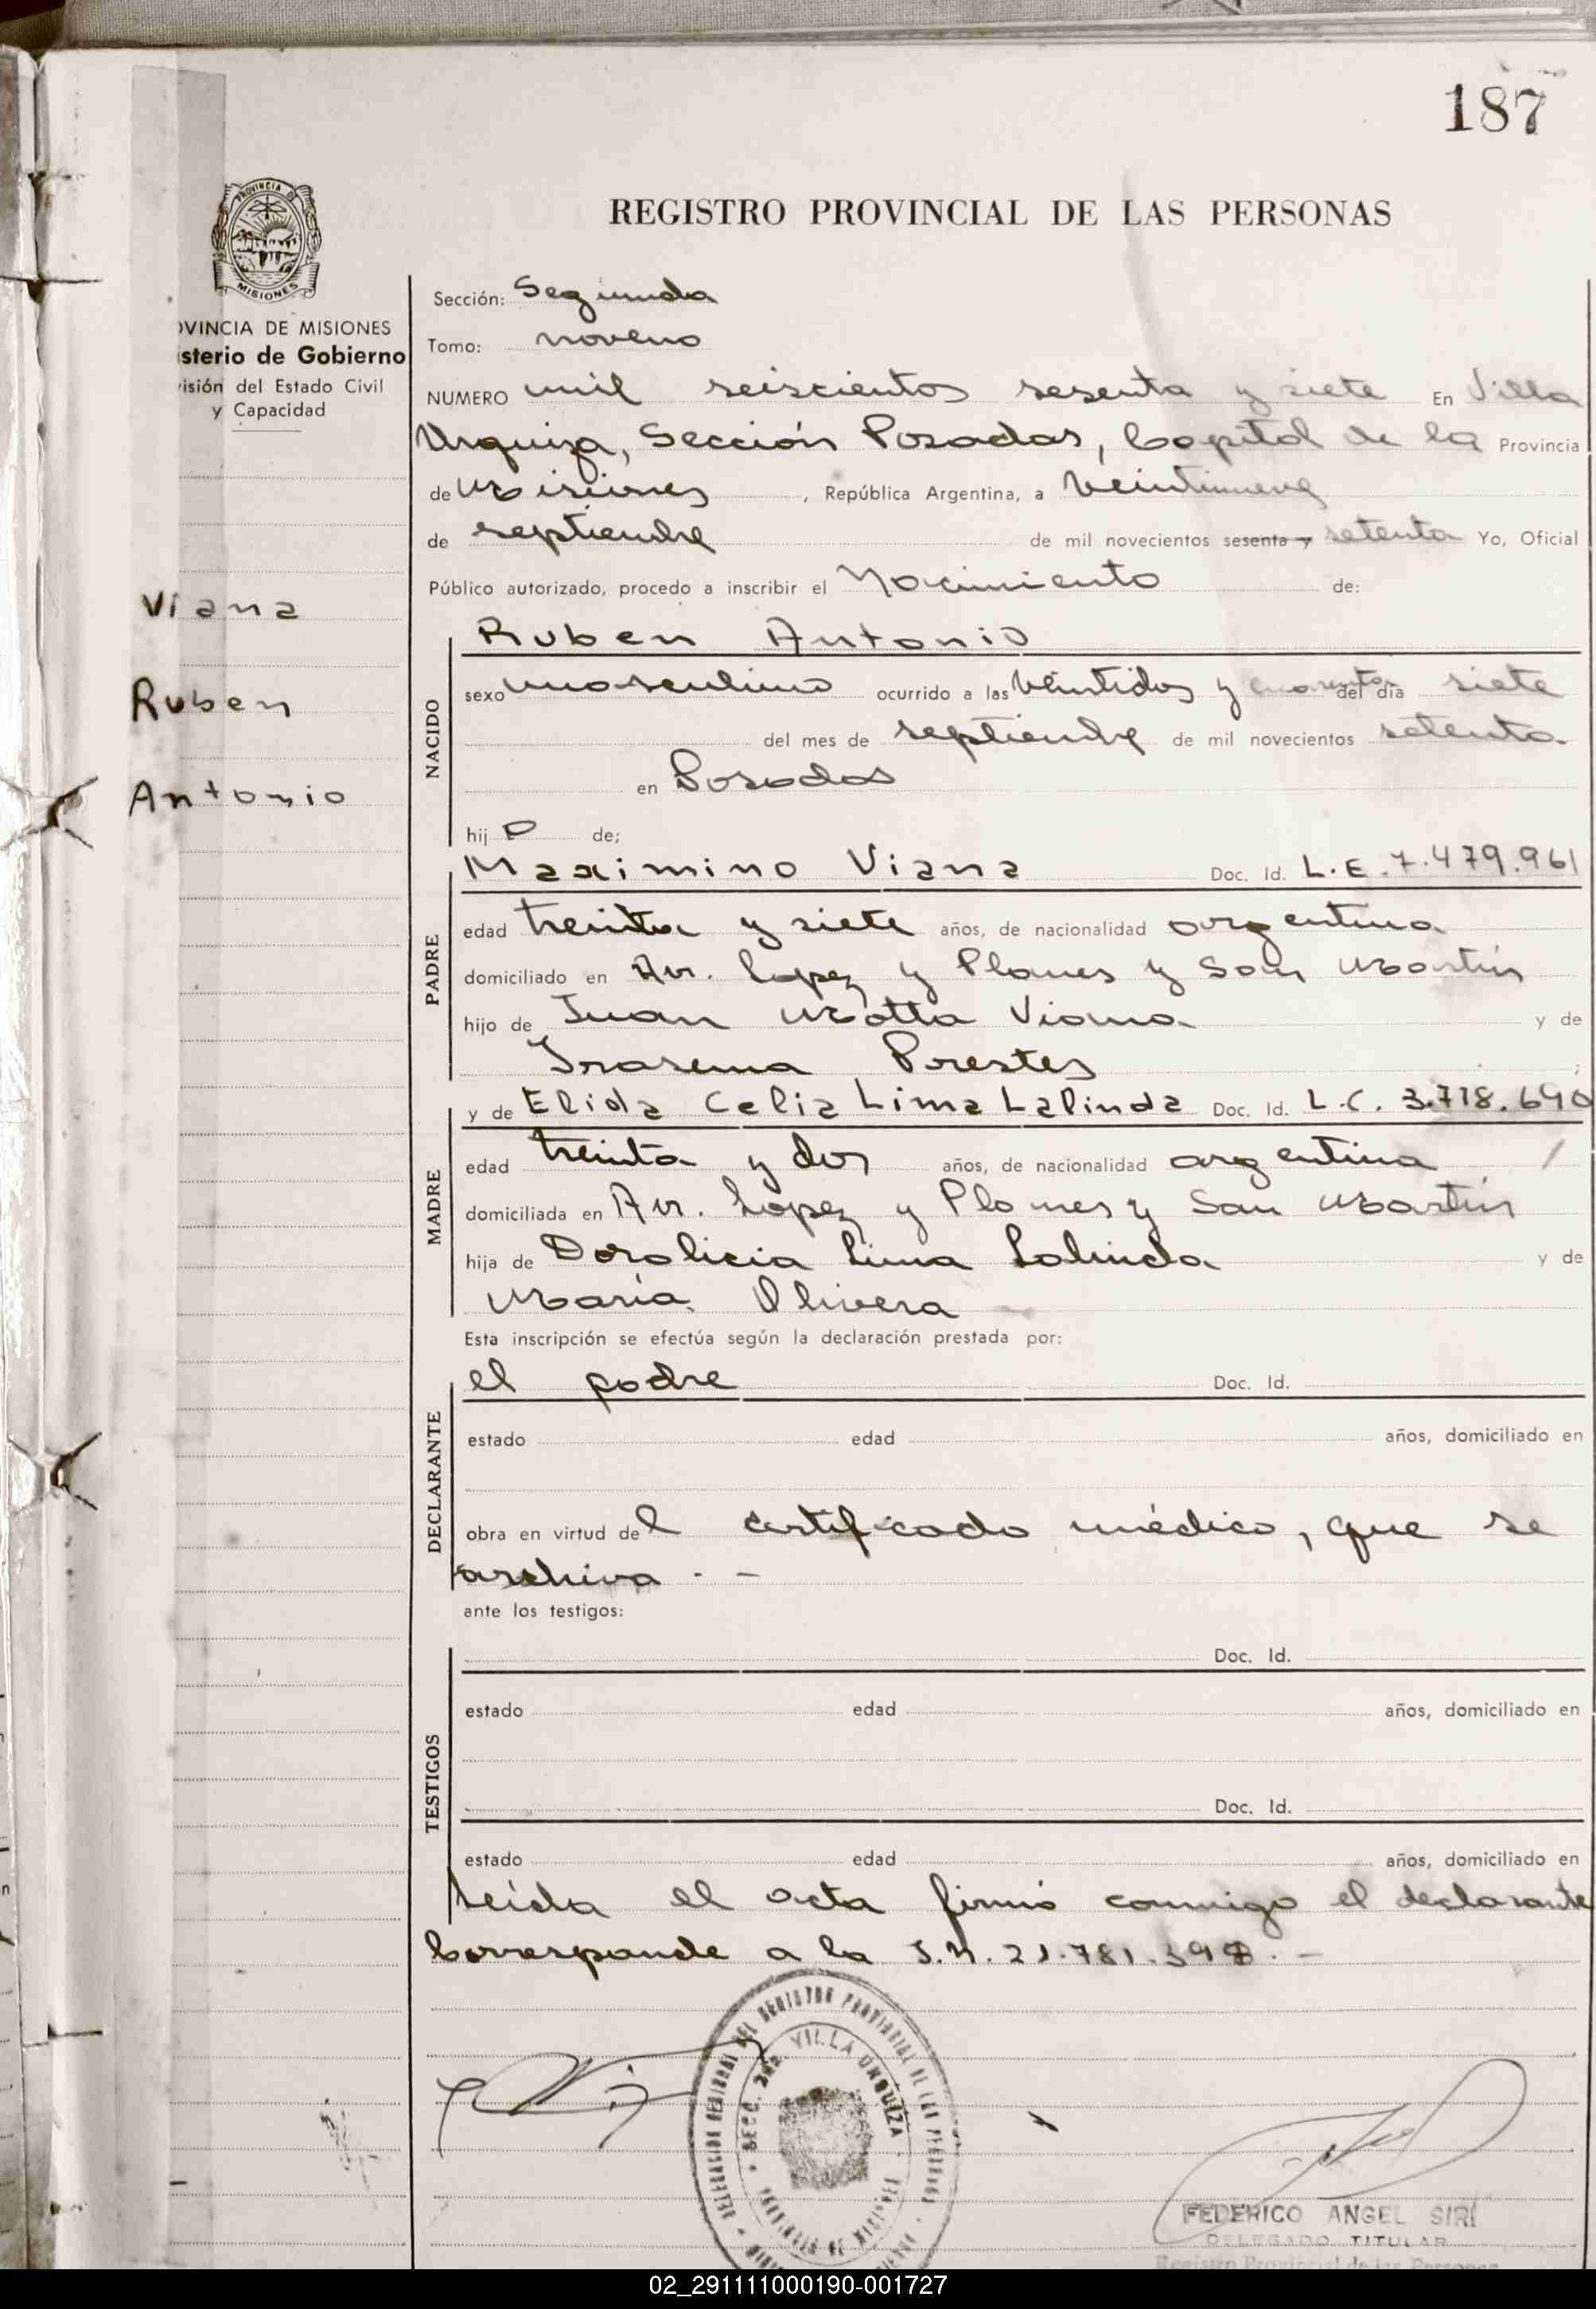 187
REGISTRO PROVINCIAL DE LAS PERSONAS
PROVINCIA DE
MISIONES
OVINCIA DE MISIONES
isterio de Gobierno
visión del Estado Civil
y Capacidad
Viana
Ruben
Antonio
Sección: Segunda
Tomo: noveno
NUMERO mil seiscientos sesenta y siete En Villa
Urquiza, Sección Posadas, Capital de la Provincia
de Misiones, República Argentina, a veintinueve
de septiembre de mil novecientos sesenta y setenta Yo, Oficial
Público autorizado, procedo a inscribir el Nacimiento de:
NACIDO
Ruben Antonio
sexo masculino ocurrido a las veintidos y cuarenta del día siete
del mes de septiembre de mil novecientos setenta
en Posadas
hijo de;
PADRE
Maximino Viana Doc. Id. L.E. 7.479.961
edad treinta y siete años, de nacionalidad argentina
domiciliado en Av. Lopez y Planes y San Martín
hijo de Juan Motta Viana y de
Irasema Prestes;
MADRE
y de Elida Celia Lima Lalinda Doc. Id. L.C. 3.718.690
edad treinta y dos años, de nacionalidad argentina
domiciliada en Av. Lopez y Planes y San Martín
hija de Doralicia Lima Lalinda y de
María Olivera
Esta inscripción se efectúa según la declaración prestada por:
DECLARANTE
el padre Doc. Id.
estado edad años, domiciliado en
obra en virtud del certificado médico, que se
archiva. -
ante los testigos:
TESTIGOS
Doc. Id.
estado edad años, domiciliado en
Doc. Id.
estado edad años, domiciliado en
Leída el acta firmó conmigo el declarante
Corresponde a la I.N. 21.781.398. -
DELEGACION REGIONAL DEL REGISTRO PROVINCIAL DE LAS PERSONAS
SECC. 2da. VILLA URQUIZA
FEDERICO ANGEL SIRI
DELEGADO TITULAR
Registro Provincial de las Personas
02_291111000190-001727